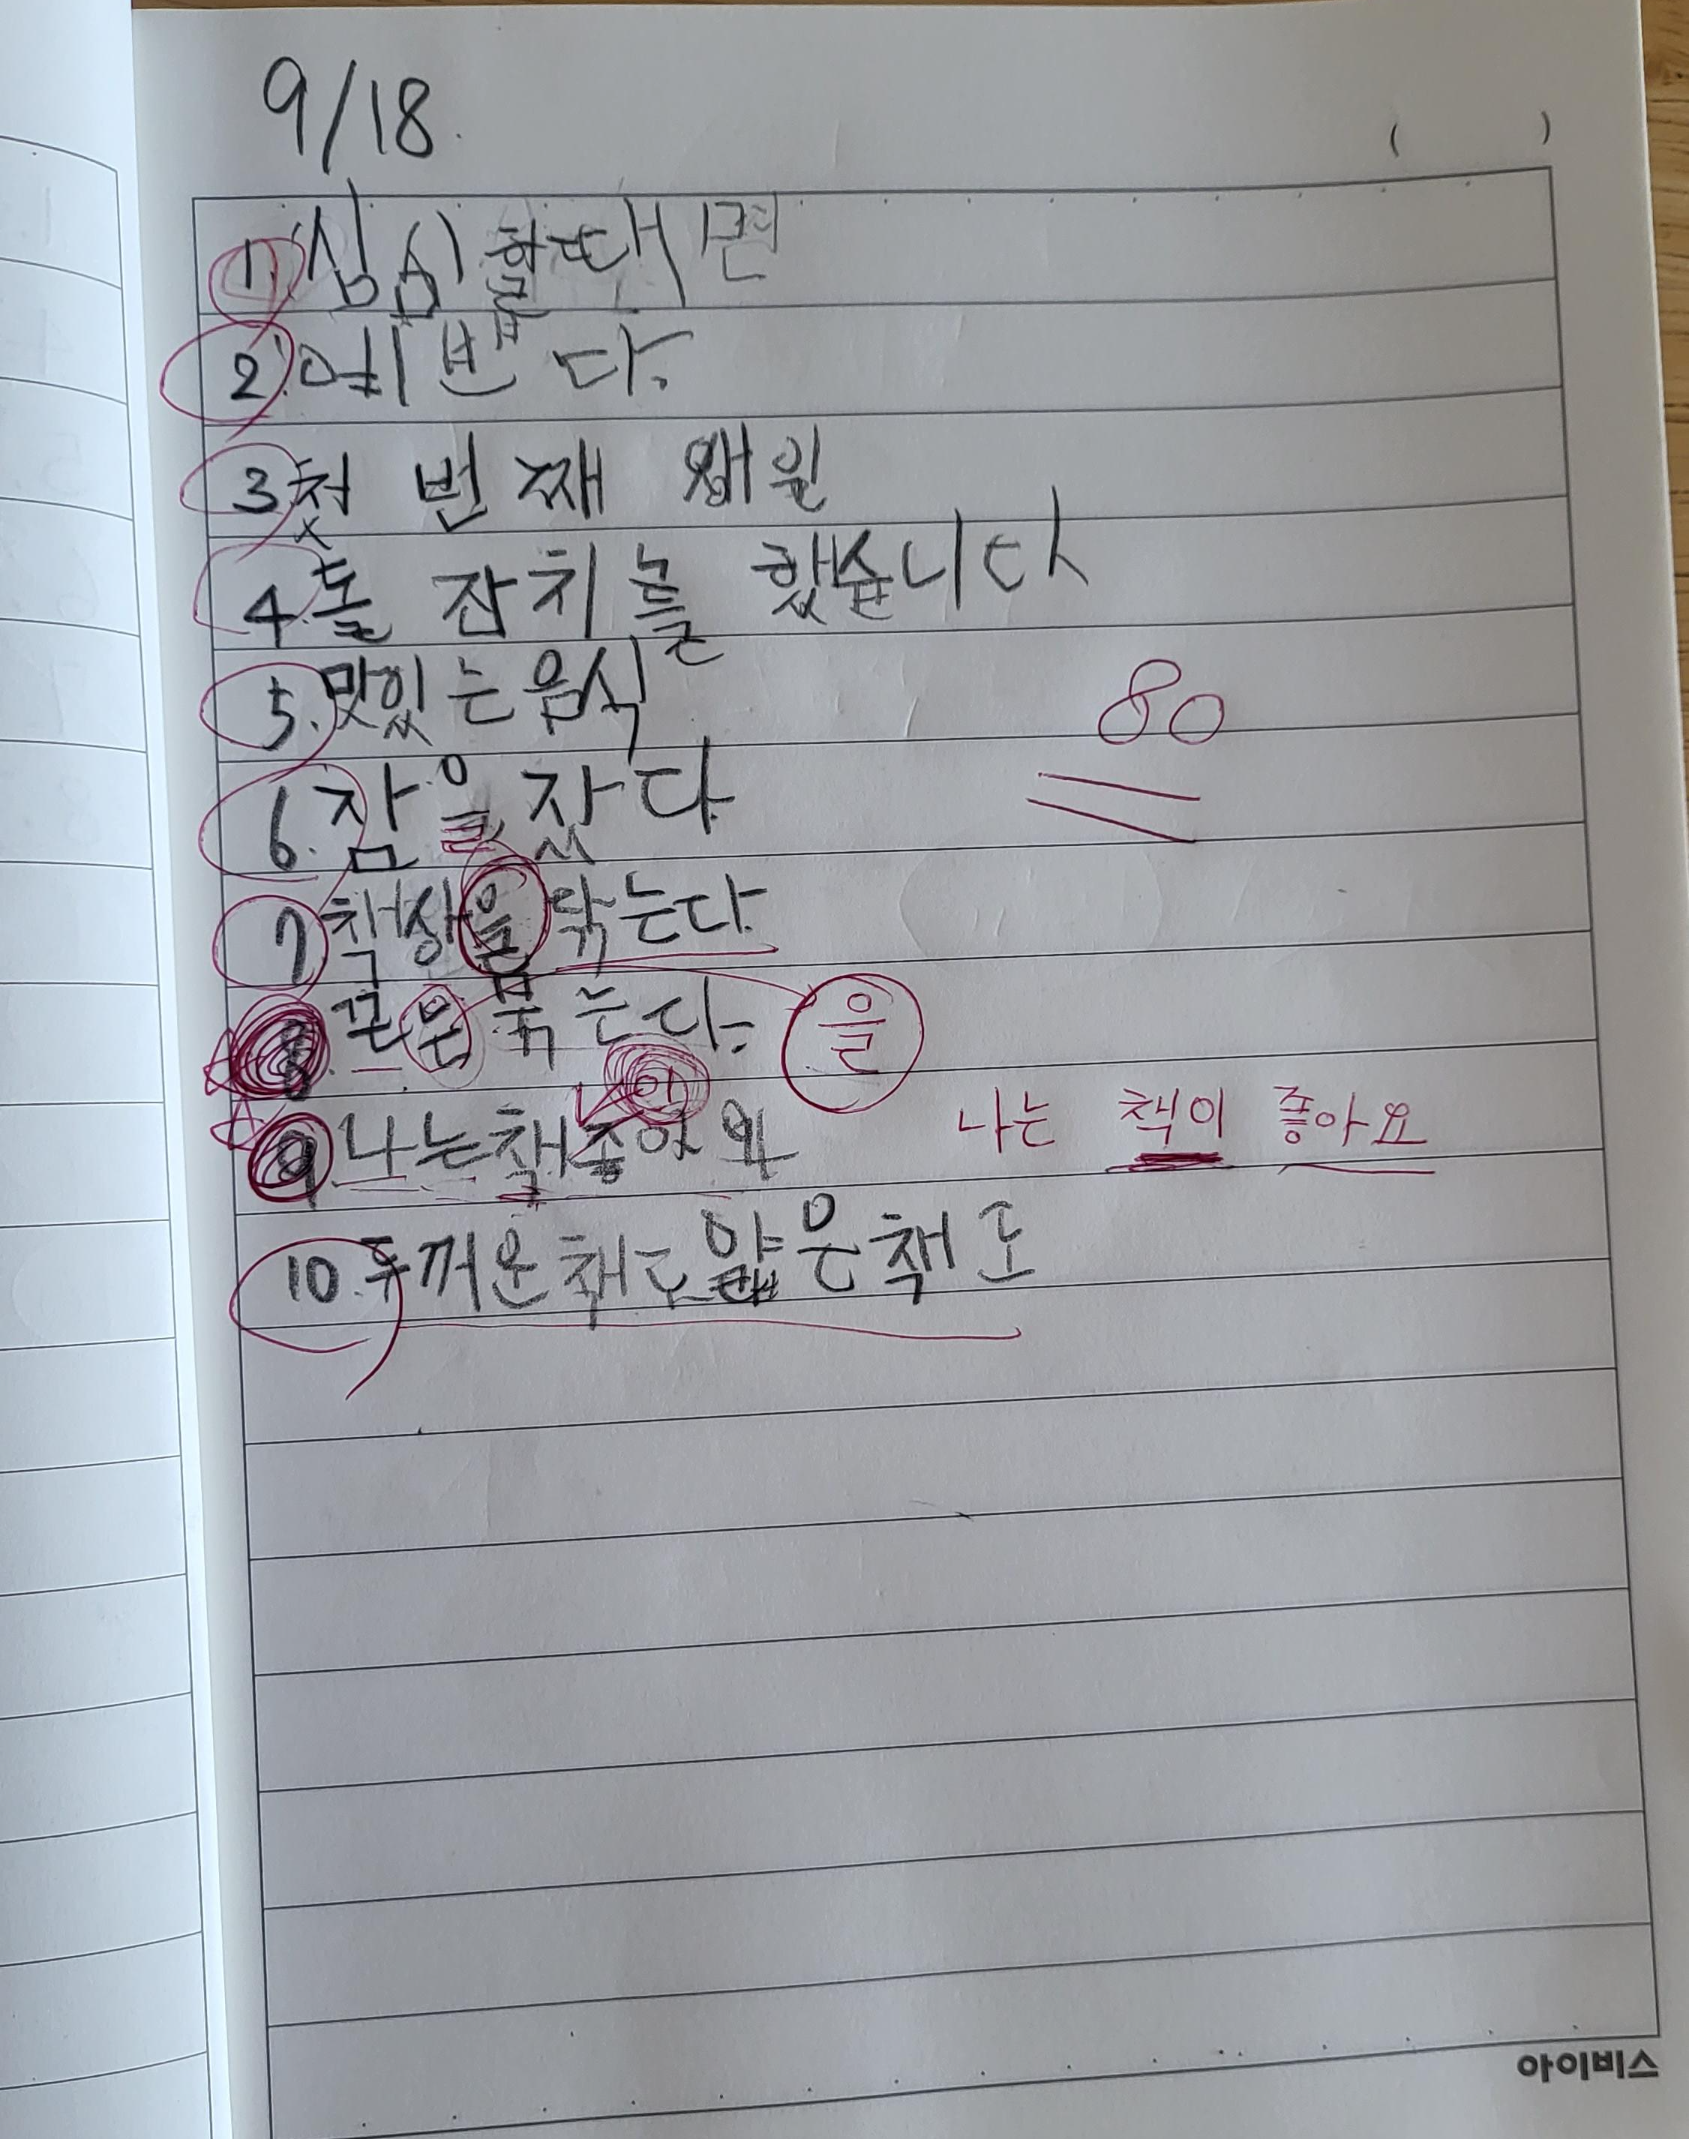 9/18.
( )
1. 심심할때면
2. 예쁘다.
3 첫 번째 생일
4. 돌 잔치를 했습니다
80
5. 맛있는음식
6. 잠을 잤다
7 책상을 닦는다.
8. 끈은 묶는다. 을
이
9. 나는책좋아 나는 책이 좋아요
10. 두꺼운책도얇은책도
아이비스